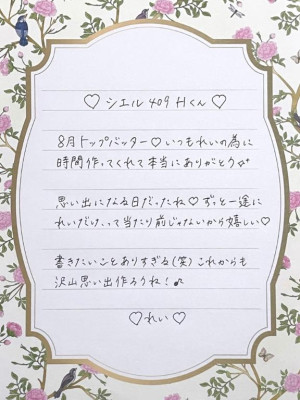 ♡ シエル 409 Hくん ♡
8月トップバッター♡いつもれいの為に
時間作ってくれて本当にありがとう✨
思い出になる日だったね♡ずっと一途に
れいだけ、って当たり前じゃないから嬉しい♡
書きたいことありすぎる(笑)これからも
沢山思い出作ろうね!♪
♡れい♡